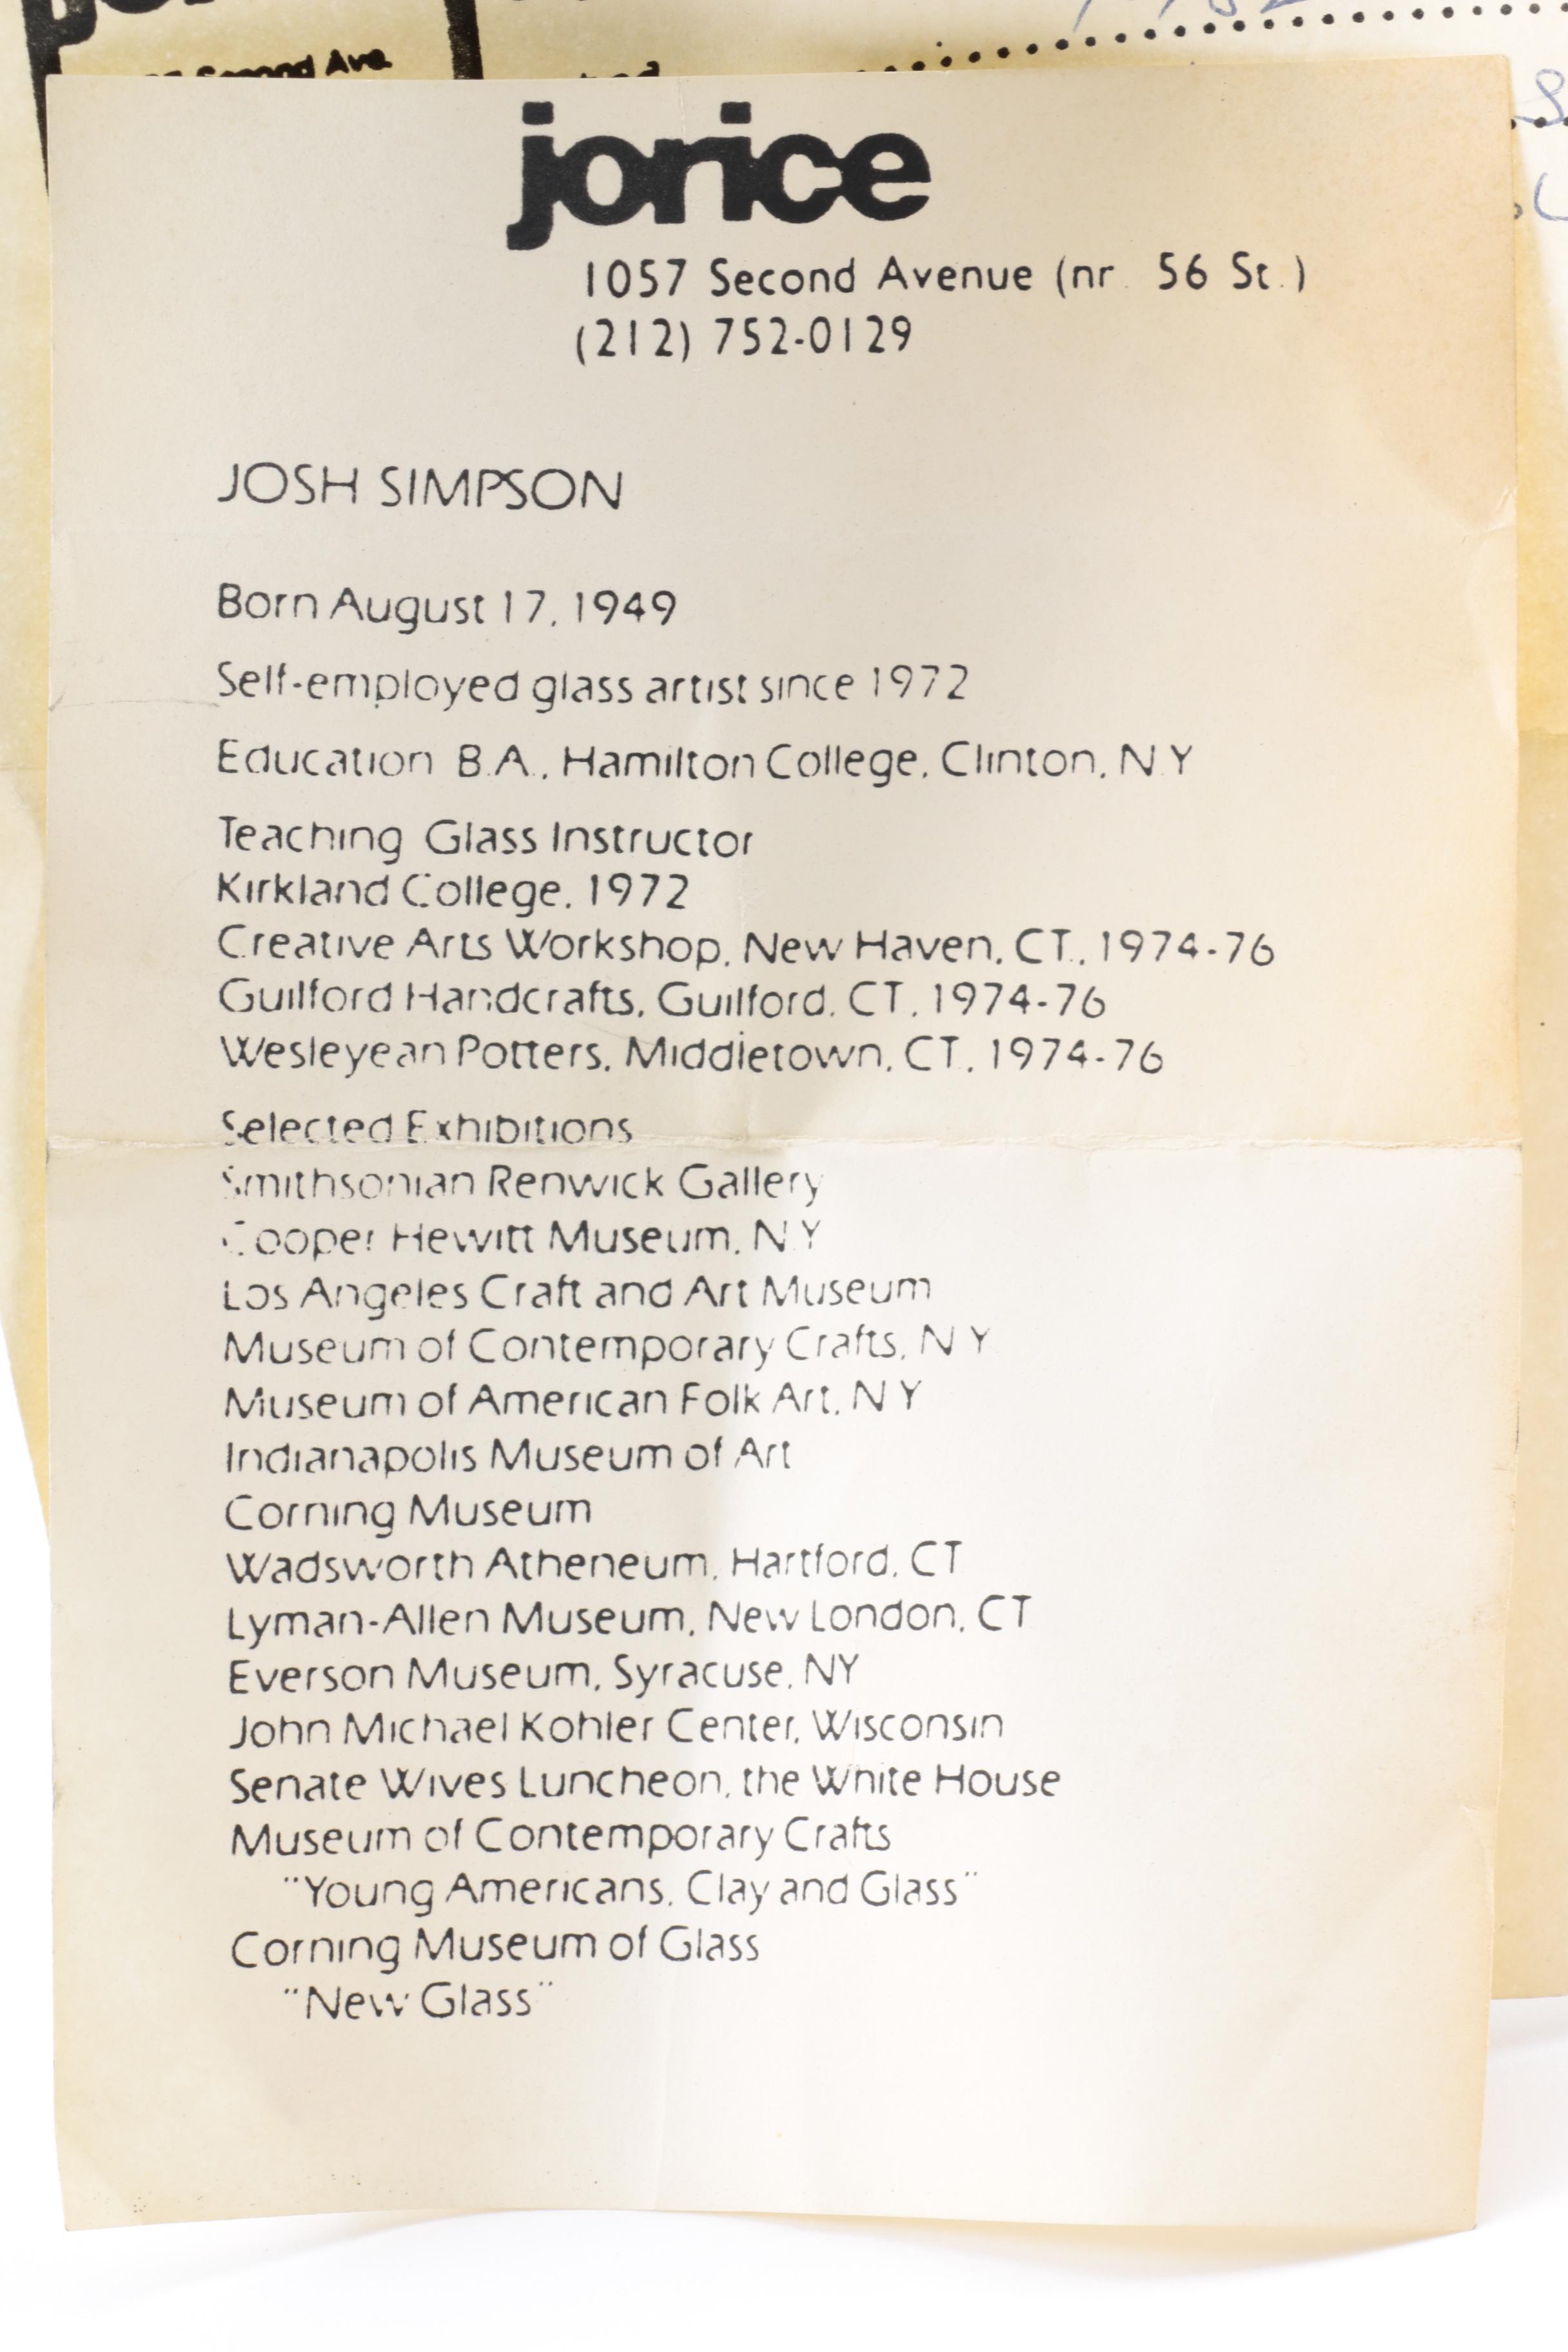 Second Ave.
jorice
1057 Second Avenue (nr. 56 St.)
(212) 752-0129
JOSH SIMPSON
Born August 17, 1949
Self-employed glass artist since 1972
Education B.A., Hamilton College, Clinton, N.Y
Teaching Glass Instructor
Kirkland College, 1972
Creative Arts Workshop, New Haven, CT., 1974-76
Guilford Handcrafts, Guilford, CT, 1974-76
Wesleyean Potters, Middletown, CT, 1974-76
Selected Exhibitions
Smithsonian Renwick Gallery
Cooper Hewitt Museum, N.Y
Los Angeles Craft and Art Museum
Museum of Contemporary Crafts, N Y
Museum of American Folk Art, N Y
Indianapolis Museum of Art
Corning Museum
Wadsworth Atheneum, Hartford, CT
Lyman-Allen Museum, New London, CT
Everson Museum, Syracuse, NY
John Michael Kohler Center, Wisconsin
Senate Wives Luncheon, the White House
Museum of Contemporary Crafts
"Young Americans, Clay and Glass"
Corning Museum of Glass
"New Glass"